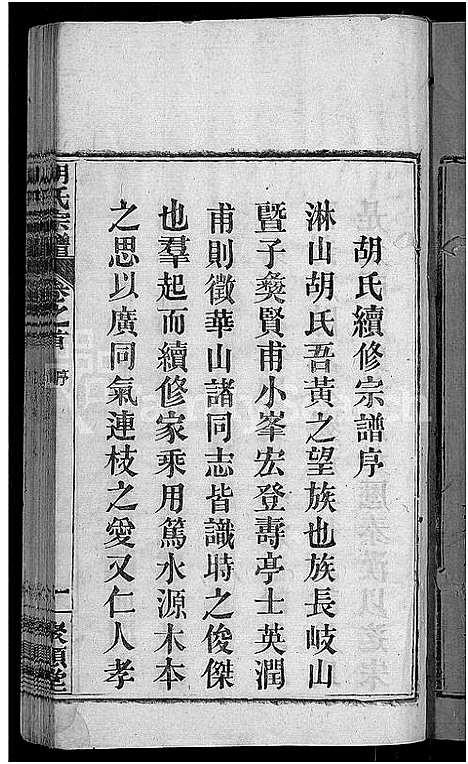 胡氏續修宗譜序
淋山胡氏吾黃之望族也族長岐山
暨子燮賢甫小峯宏登壽亭士英潤
甫則徵華山諸同志皆識時之俊傑
也羣起而續修家乘用篤水源木本
之思以廣同氣連枝之愛又仁人孝
胡氏宗譜 卷之首 序